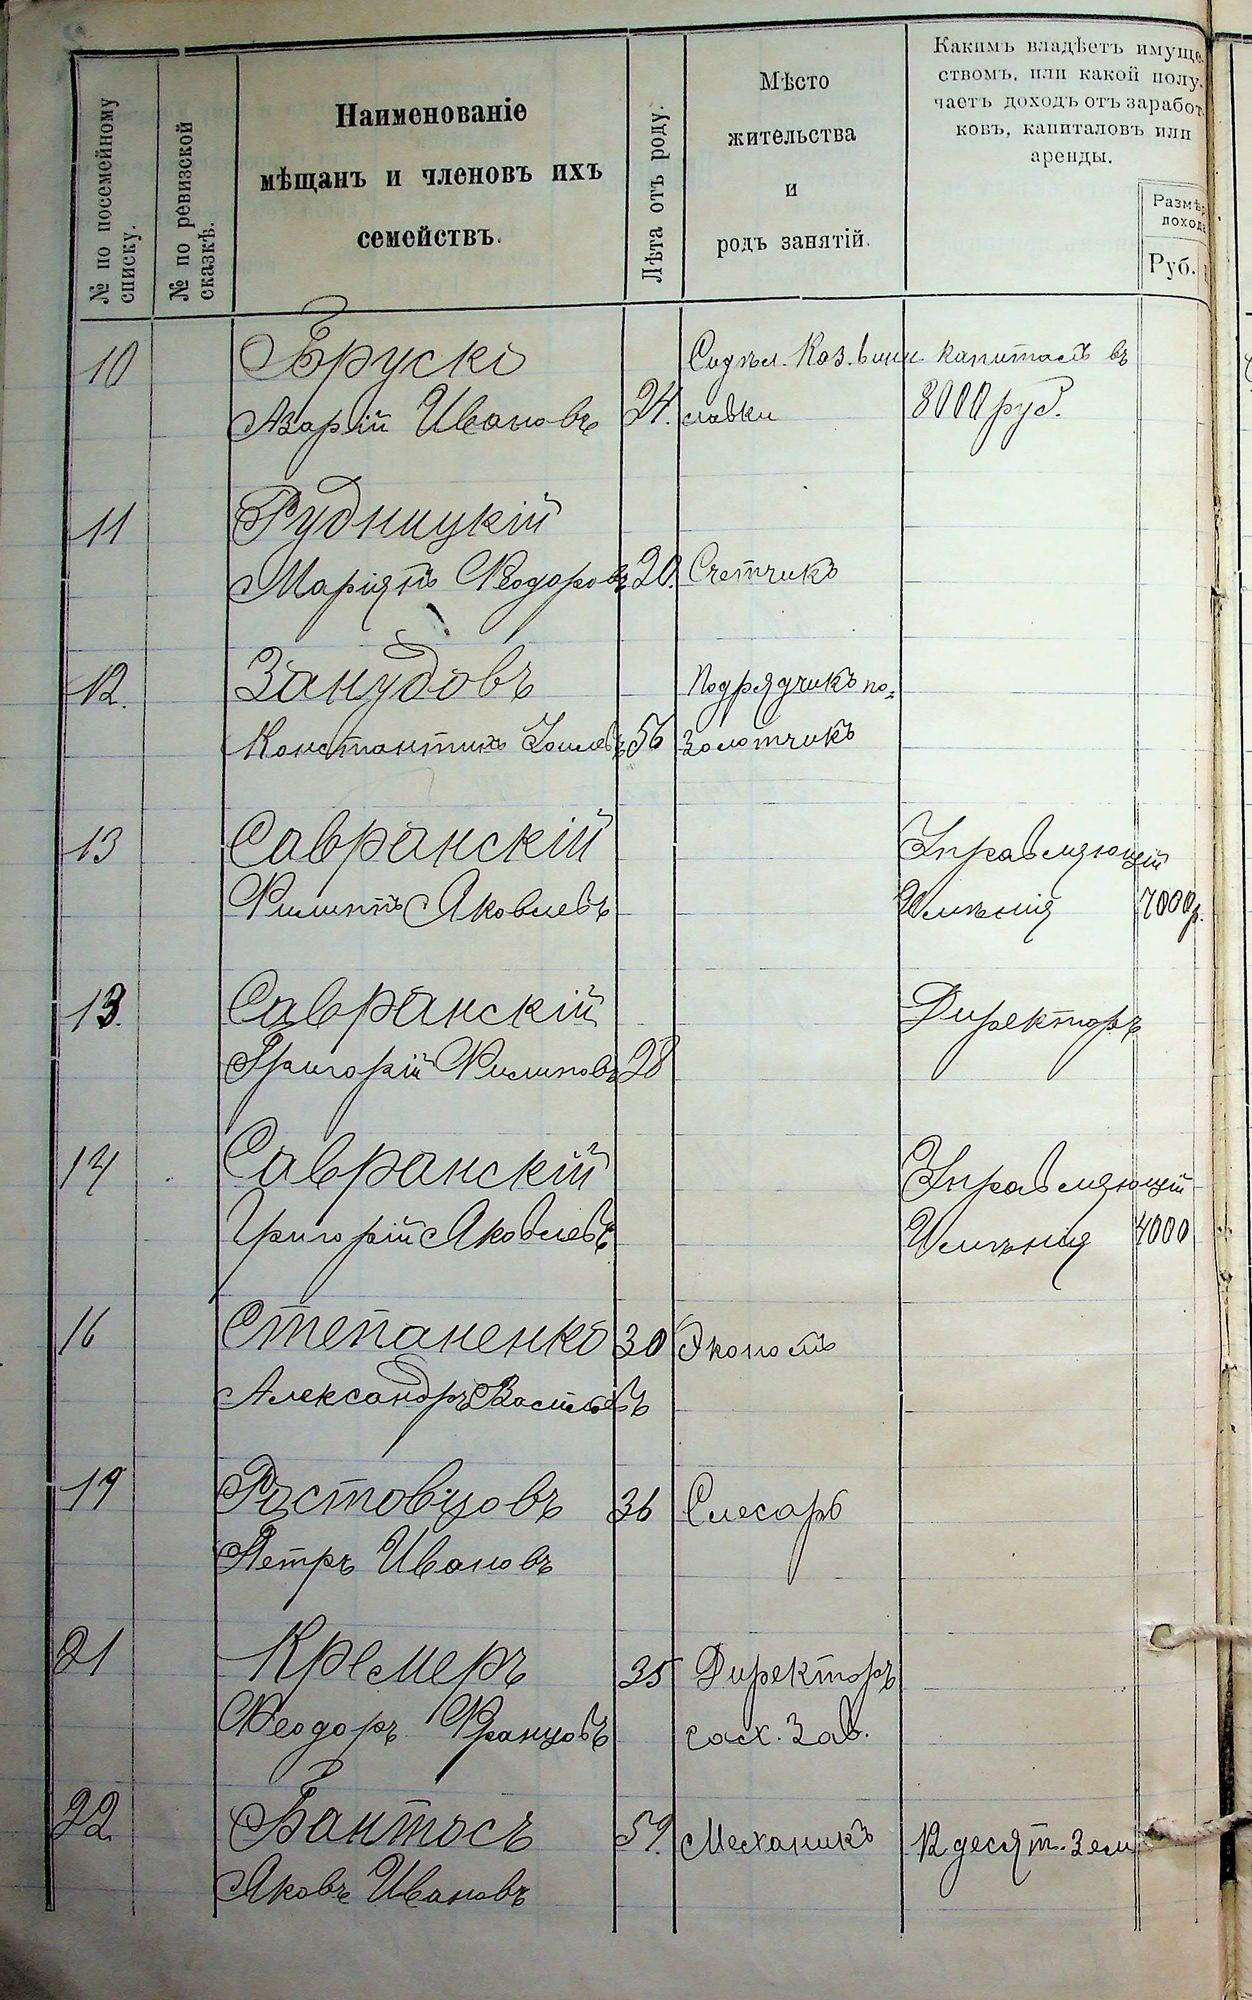 № по посемейному списку.
№ по ревизской сказкѣ.
Наименованіе
мѣщанъ и членовъ ихъ
семействъ.
Лѣта отъ роду.
Мѣсто
жительства
и
родъ занятій.
Какимъ владѣетъ имуще-
ствомъ, или какой полу-
чаетъ доходъ отъ заработ-
ковъ, капиталовъ или
аренды.
Размѣр
дохода
Руб.
10 Бруски Сидѣл. Каз. винн. капиталъ въ
Азарій Ивановъ 24. лавки 8000 руб.
11 Рудницкій
Маріянъ Ѳеодоровъ 20. Счетчикъ
12. Занудовъ Подрядчикъ по=
Константинъ 56 золотчикъ
13 Савранскій Управляющій
Филиппъ Яковлевъ Имѣнія 7000р.
13. Савранскій Директоръ
Григорій Филиповъ 28
14 Савранскій Управляющій
Григорій Яковлевъ Имѣнія 4000
16 Степаненко 30 Экономъ
Александръ Васильевъ
19 Ростовцовъ 36 Слесарь
Петръ Ивановъ
21 Кремеръ 35 Директоръ
Ѳеодоръ Францовъ сах. Зав.
22. Бантосъ 59. Механикъ 12 десят. Зем
Яковъ Ивановъ